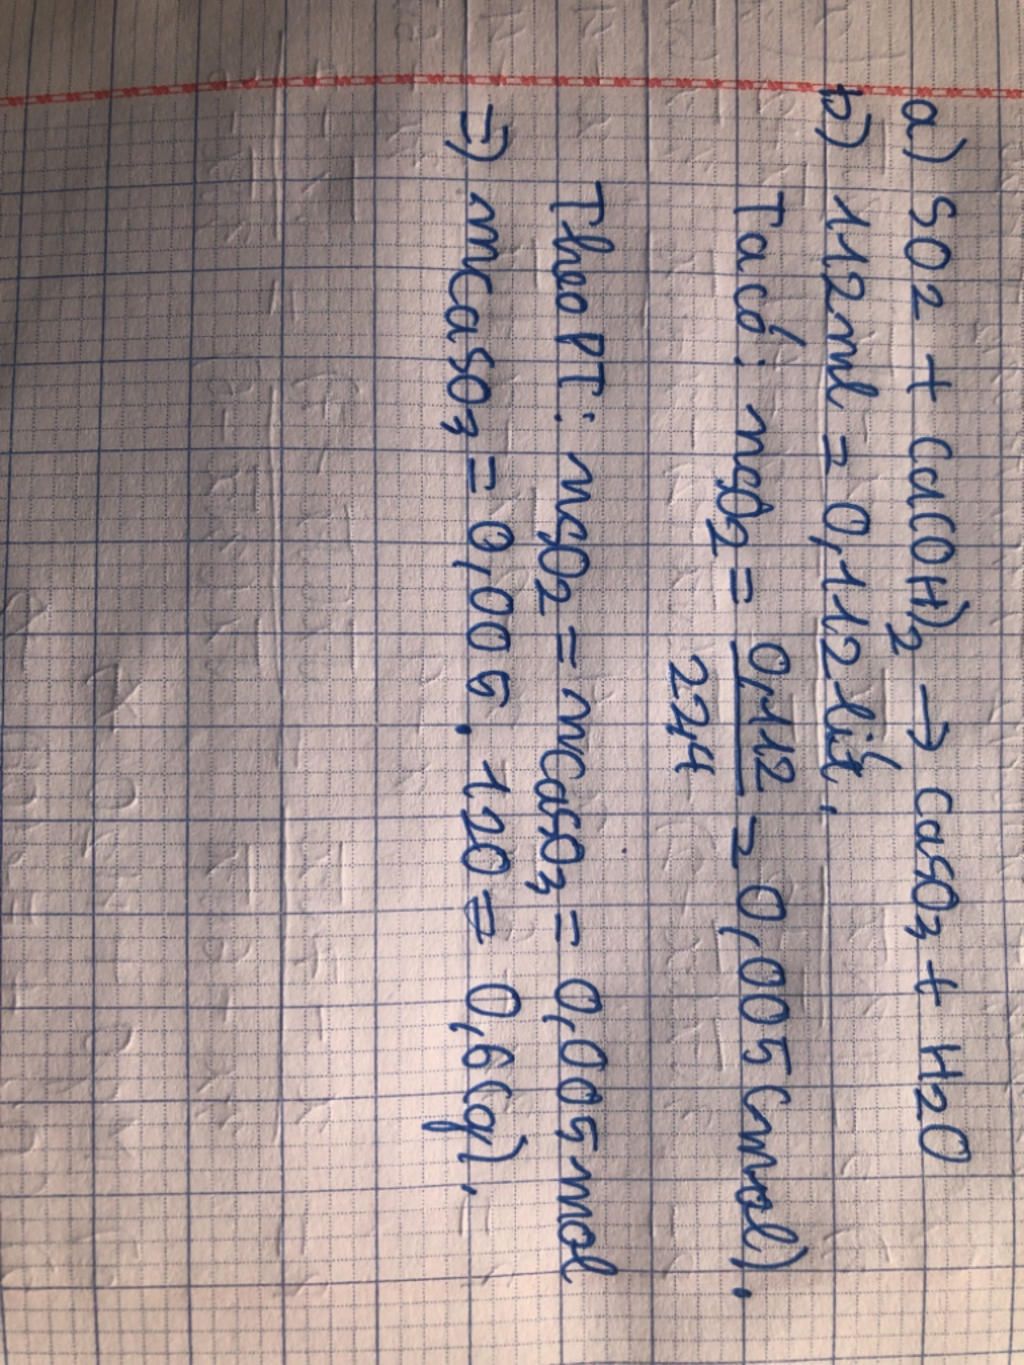 a) SO2 + Ca(OH)2 → CaSO3 + H2O
b) 112ml = 0,112 lít.
Ta có: nSO2 = 0,112 / 22,4 = 0,005 (mol).
Theo PT: nSO2 = nCaSO3 = 0,005 mol
=) mCaSO3 = 0,005 . 120 = 0,6 (g).